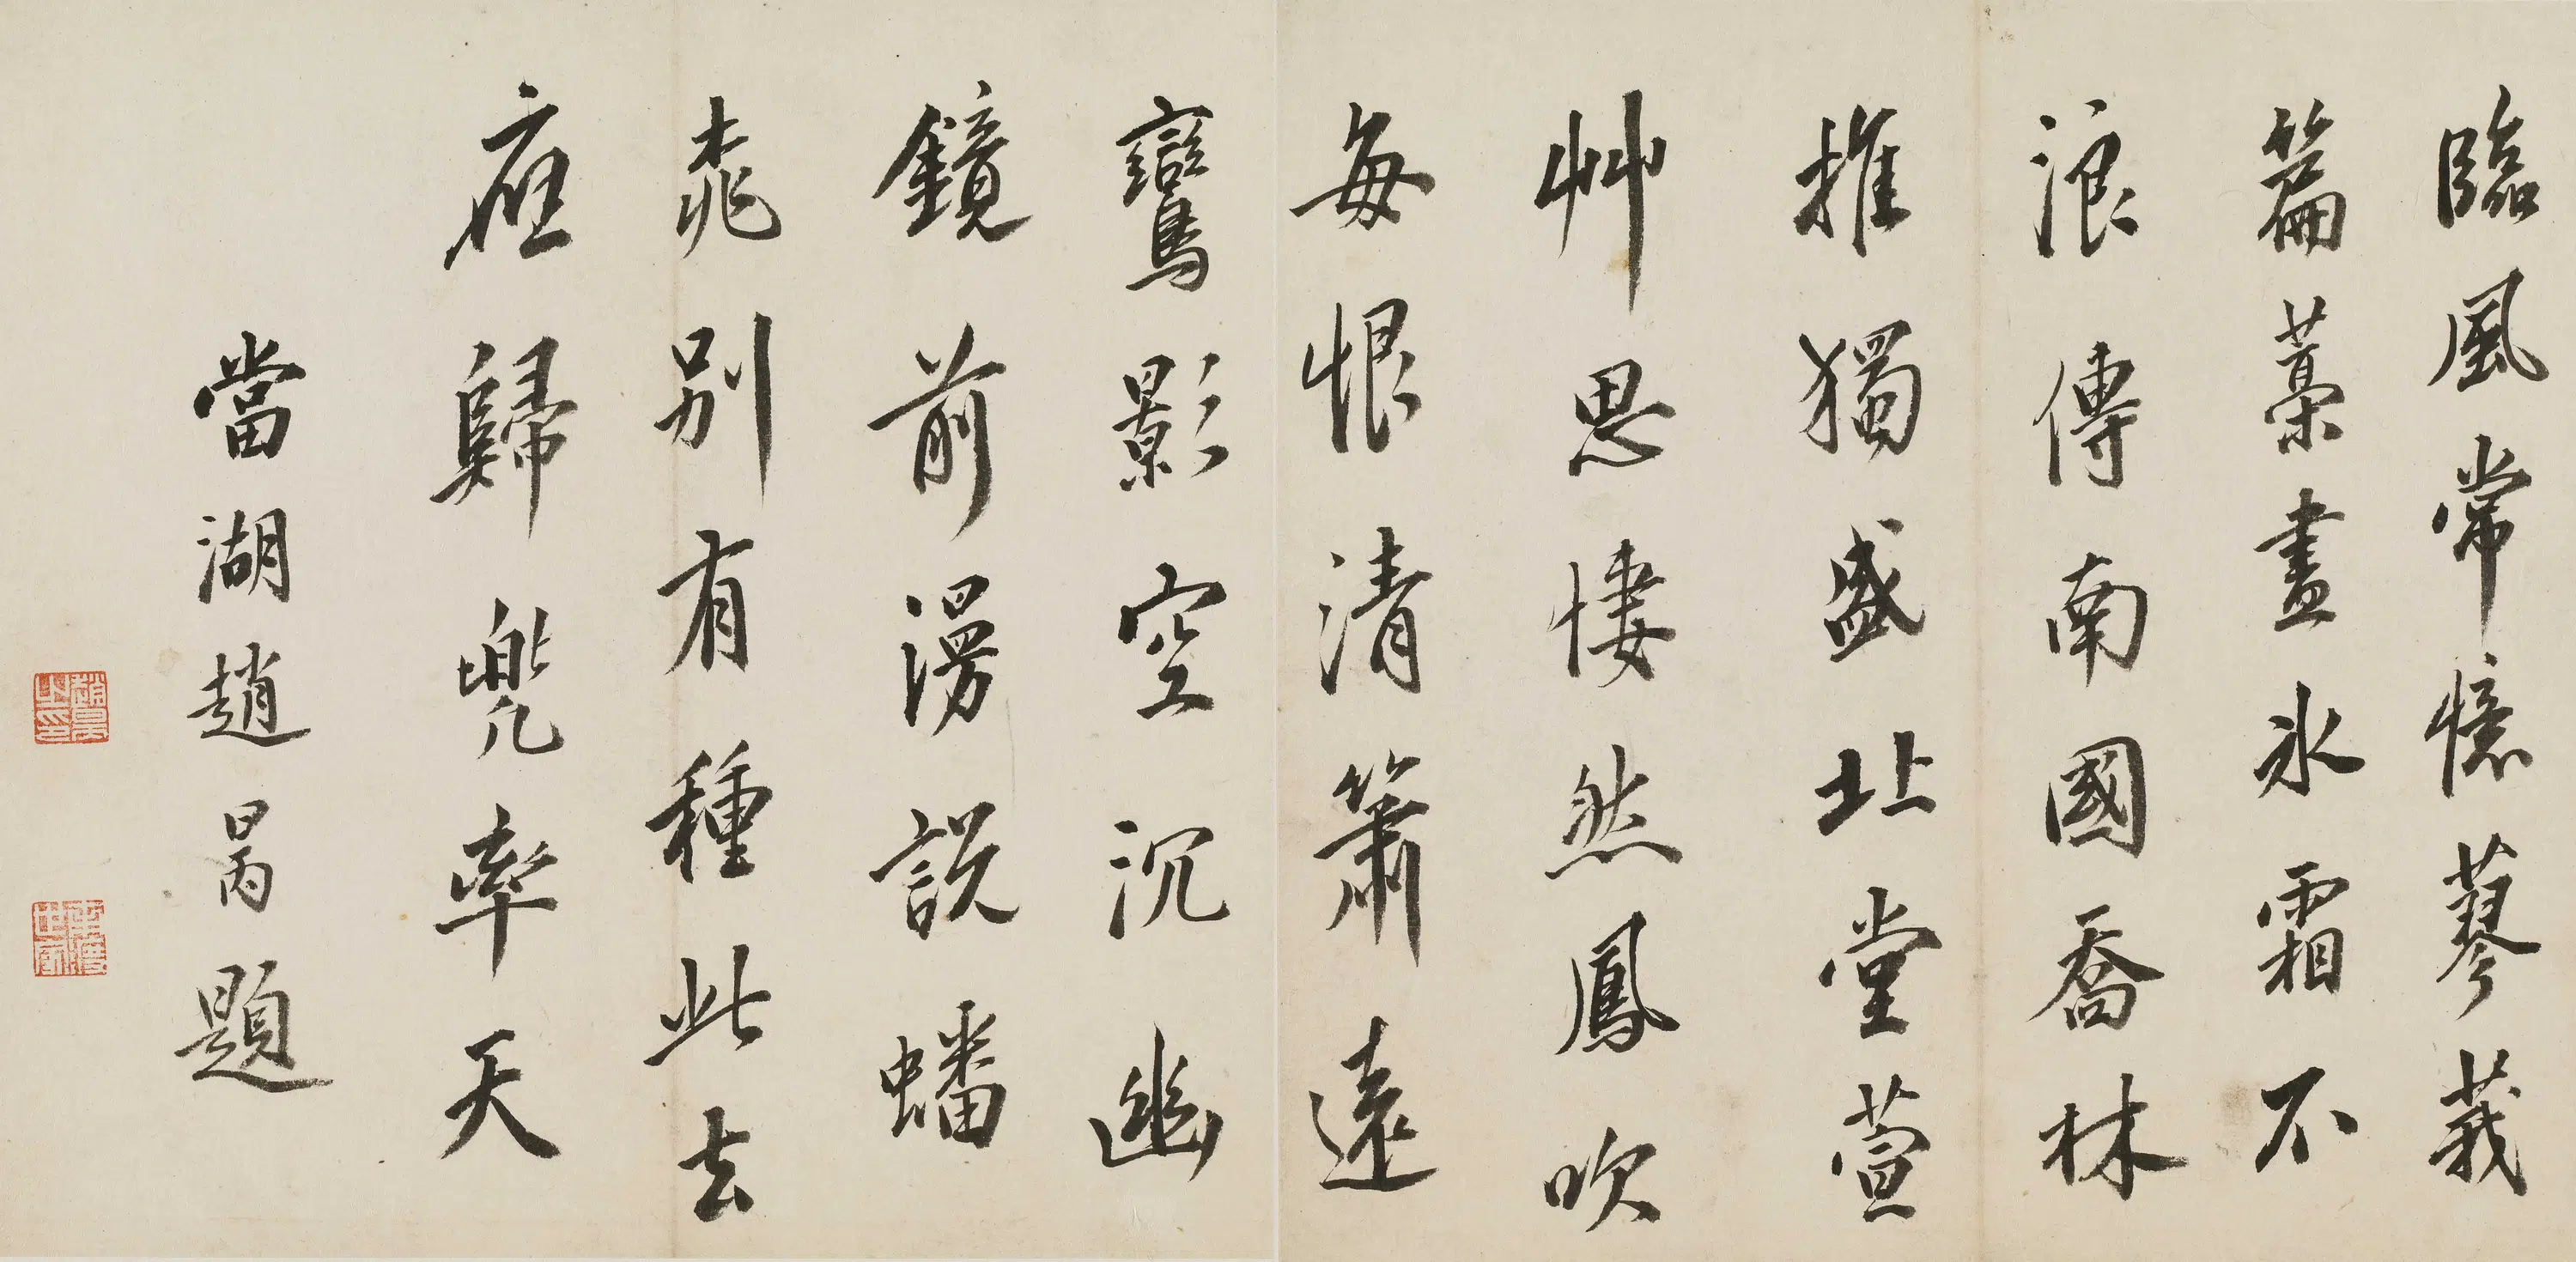 臨風常憶蓼莪
篇藁畫氷霜不
浪傳南國喬林
推獨盛北堂萱
艸思悽然鳳吹
每恨清簫遠
鸞影空沉幽
鏡前漫說蟠
桃別有種此去
應歸兜率天
當湖趙昺題
趙昺之印